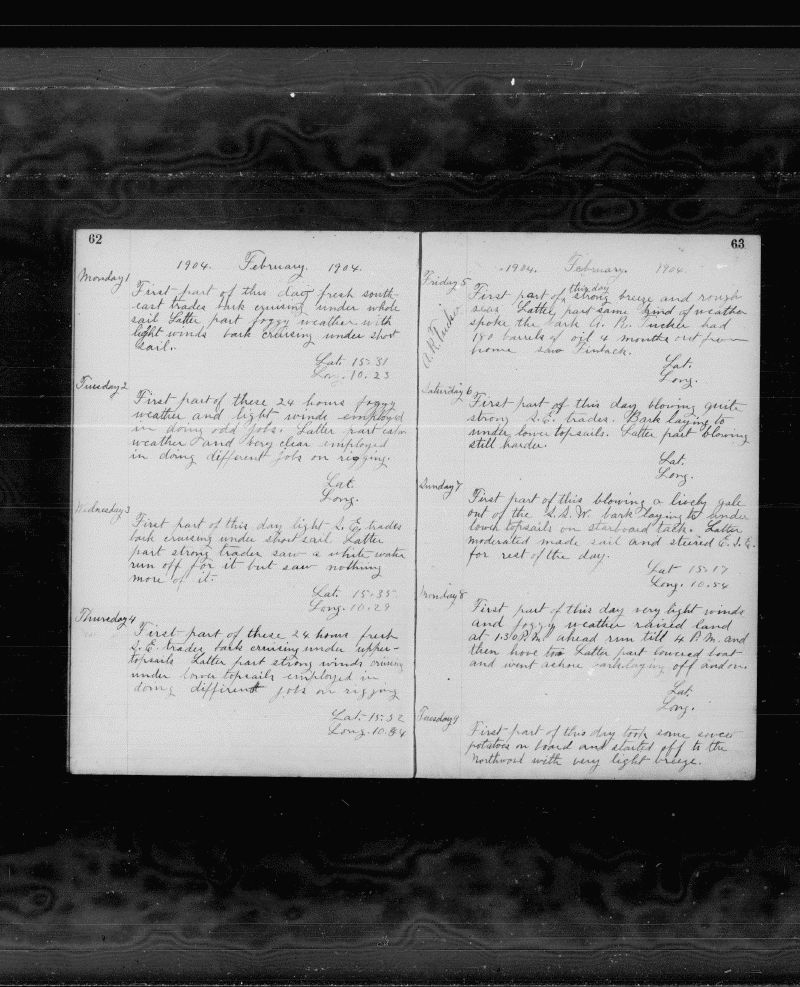 62
1904. February. 1904.
Monday 1
First part of this day fresh south-
east trades bark cruising under whole
sail Latter part foggy weather with
light winds bark cruising under short
sail.
Lat. 15-31
Long. 10.23
Tuesday 2
First part of these 24 hours foggy
weather and light winds employed
in doing odd jobs. Latter part calm
weather and very clear employed
in doing different jobs on rigging.
Lat.
Long.
Wednesday 3
First part of this day light S.E. trades
bark cruising under short sail Latter
part strong trades saw a white water
run off for it but saw nothing
more of it.
Lat. 15-35
Long. 10.29
Thursday 4
First part of these 24 hours fresh
S.E. trades bark cruising under upper-
topsails Latter part strong winds cruising
under lower topsails employed in
doing different jobs on rigging
Lat. 15-52
Long. 10.
63
1904. February. 1904.
Friday 5
A. R. Tucker
this day
First part of strong breeze and rough
seas Latter part same kind of weather
spoke the bark A. R. Tucker had
180 barrels of oil 4 months out from
home saw Finback.
Lat.
Long.
Saturday 6
First part of this day blowing quite
strong S.E. trades. Bark laying to
under lower topsails. Latter part blowing
still harder.
Lat.
Long.
Sunday 7
First part of this blowing a lively gale
out of the S.S.W. bark laying to under
lower topsails on starboard tack. Latter
moderated made sail and steered E.S.E.
for rest of the day.
Lat 15-17
Long. 10.54
Monday 8
First part of this day very light winds
and foggy weather raised land
at 1.30 P.M. ahead run till 4 P.M. and
then hove too Latter part lowered boat
and went ashore bark laying off and on
Lat.
Long.
Tuesday 9
First part of this day took some sweet
potatoes on board and started off to the
Northward with very light breeze.